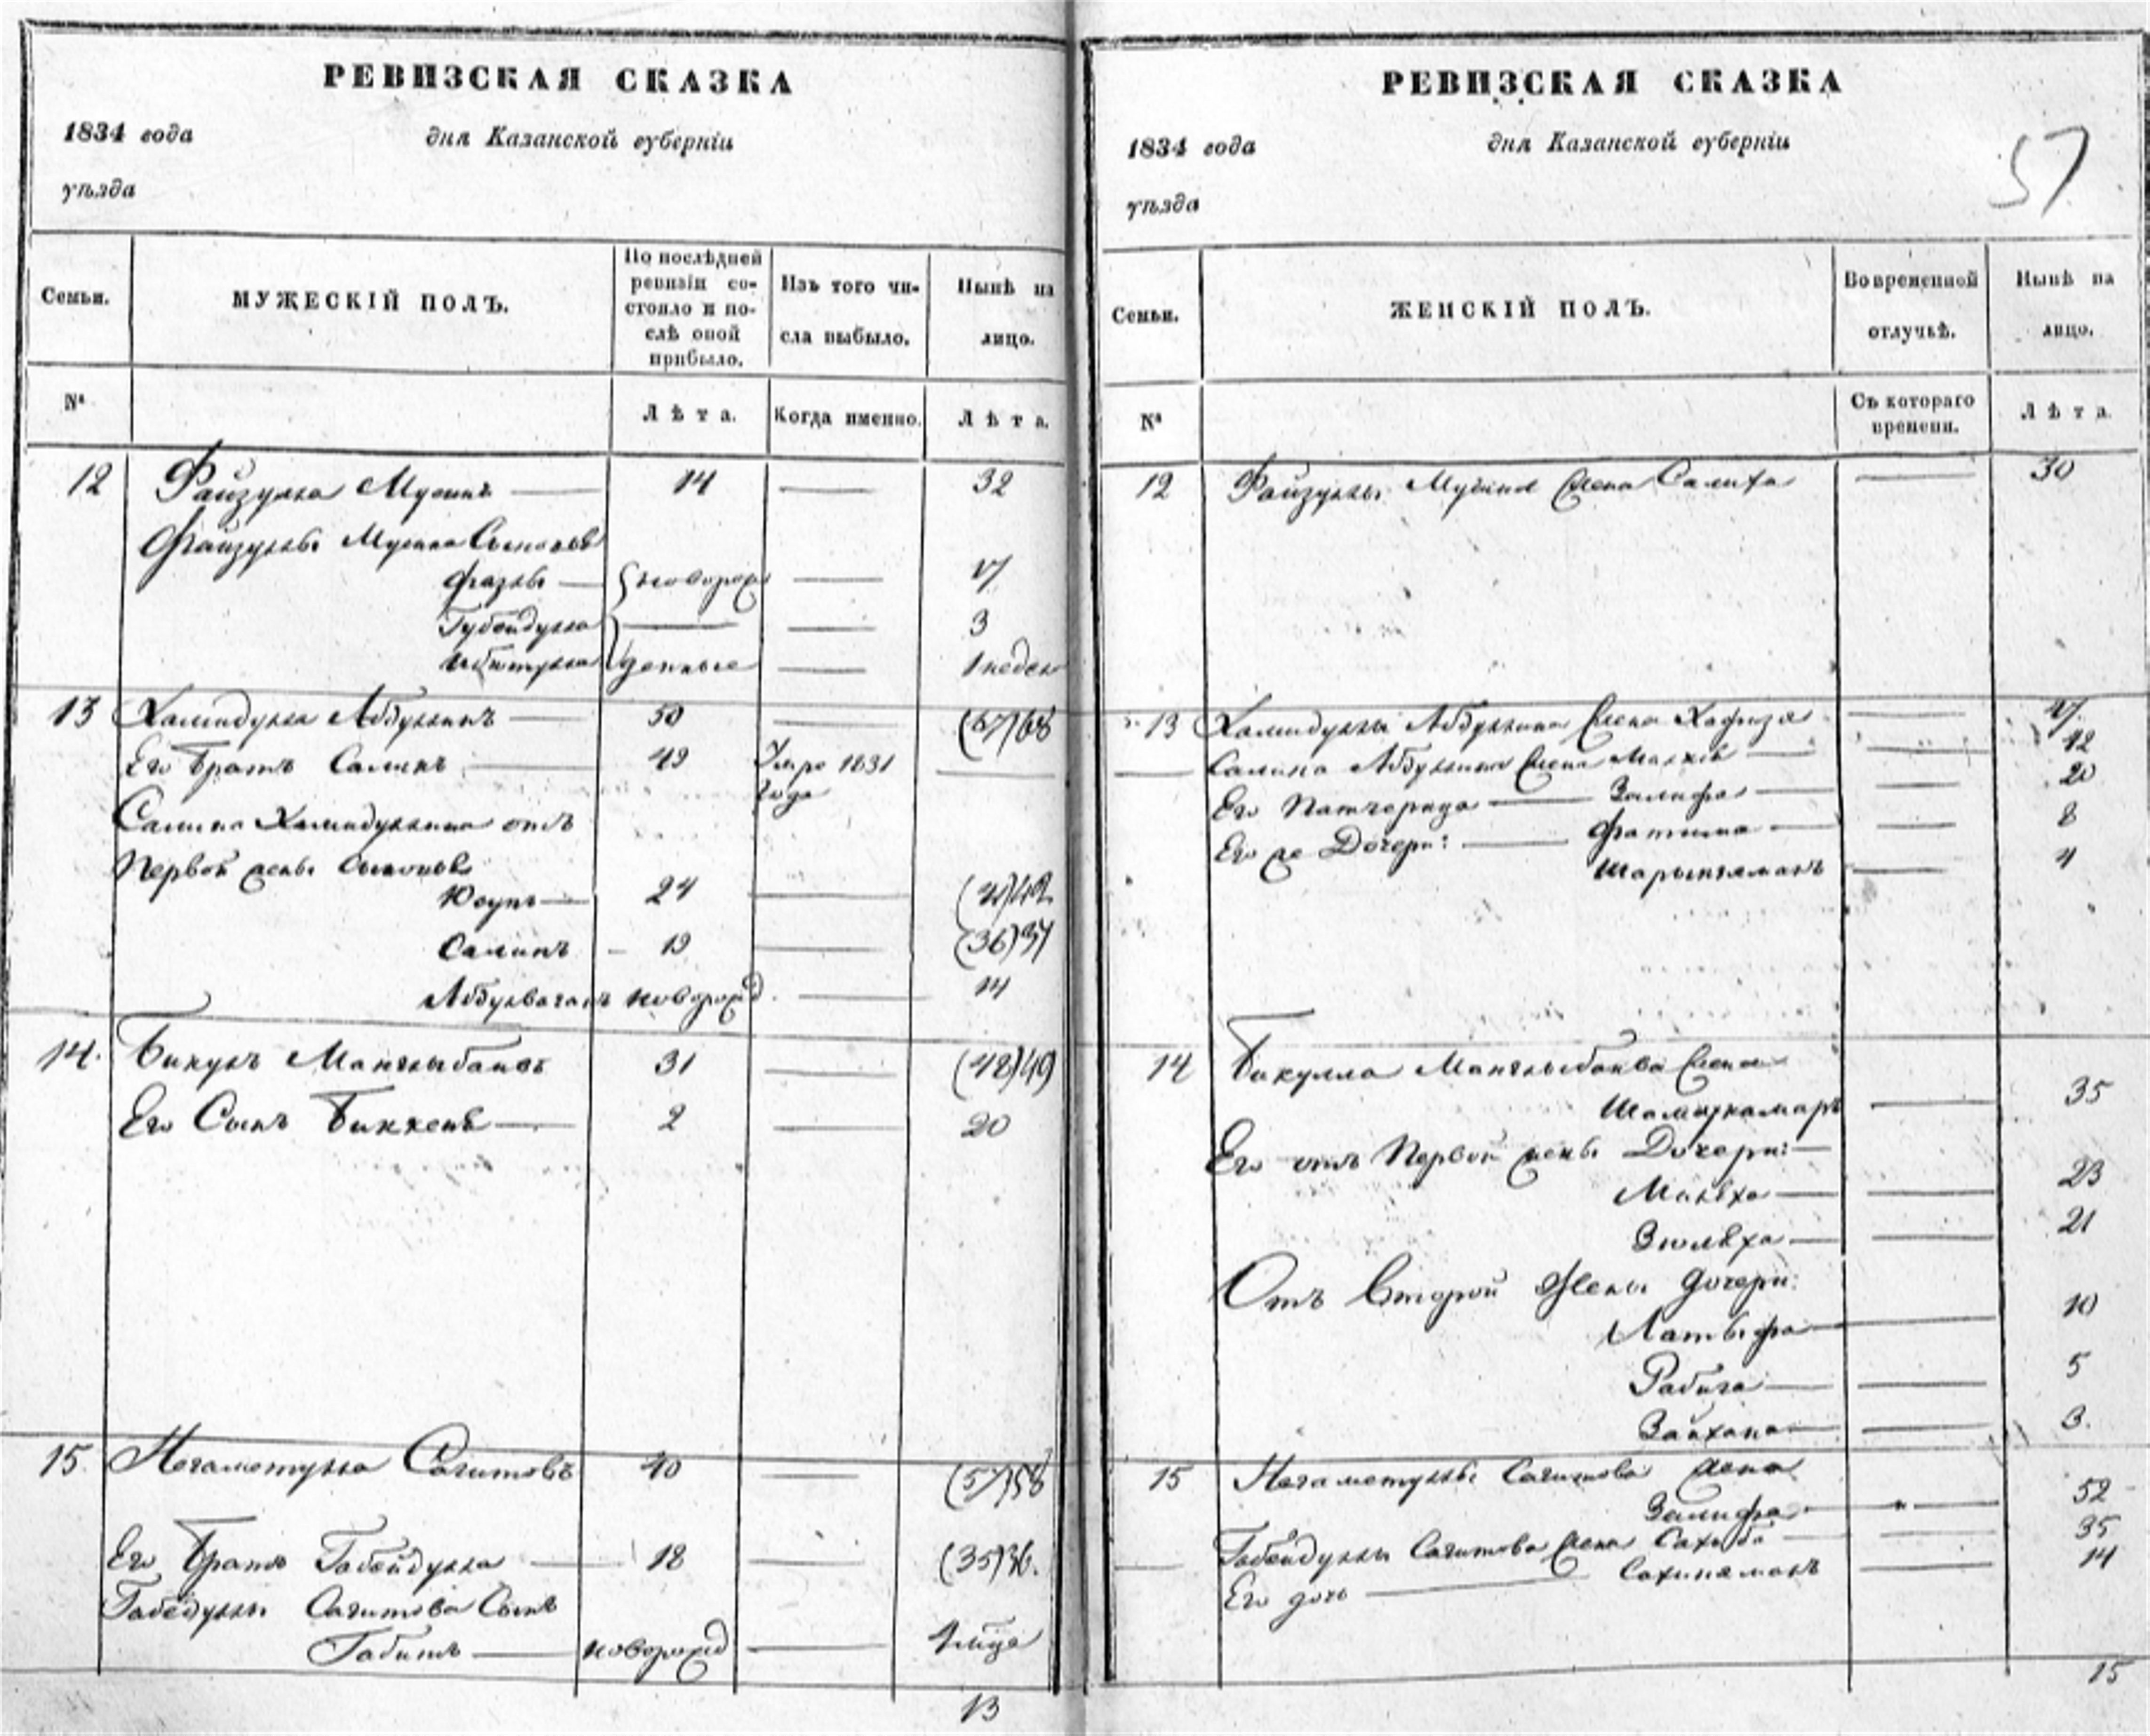 РЕВИЗСКАЯ СКАЗКА
1834 года дня Казанской губерніи
уѣзда
Семьи. МУЖЕСКІЙ ПОЛЪ. По послѣдней ревизіи состояло и послѣ оной прибыло. Изъ того числа выбыло. Нынѣ на лицо.
№ Лѣта. Когда именно. Лѣта.
12 Файзулла Мусинъ 14 32
Файзуллы Мусина Сыновья
Фазлы новорож 17
Губейдулла 3
денные 1 недел
13 Хамидулла Абдуллинъ 50 (67)68
Его Братъ Салимъ 49 Умре 1831
года
Салима Хамидуллина отъ
Первой жены Сыновья
Юсупъ 24 (41)42
Салимъ 19 (36)37
новорожд. 14
14. Бикулъ 31 (48)49
Его Сынъ 2 20
15. Негаметулла Сагитовъ 40 (57)58
Его Братъ Габейдулла 18 (35)36.
Габейдуллы Сагитова Сынъ
Габитъ новорожд
13
РЕВИЗСКАЯ СКАЗКА
1834 года дня Казанской губерніи
уѣзда
57
Семьи. ЖЕНСКІЙ ПОЛЪ. Во временной отлучкѣ. Нынѣ на лицо.
№ Съ котораго времени. Лѣта.
12 Файзуллы Мусина Жена Салиха 30
13 Хамидуллы Абдуллина Жена Хафиза
Салима Абдуллина Жена 42
Его Патчерица Залифа 20
Его же Дочери: Фатима 8
4
14 Бикулла Жена
35
Его отъ Первой жены Дочери:
Малѣха 23
Зюлѣха 21
Отъ Второй Жены дочери:
Латыфа 10
Рабига 5
3.
15 Негаметуллы Сагитова жена
Залифа 52
Габейдуллы Сагитова Жена Сахиба 35
Его дочь 14
15